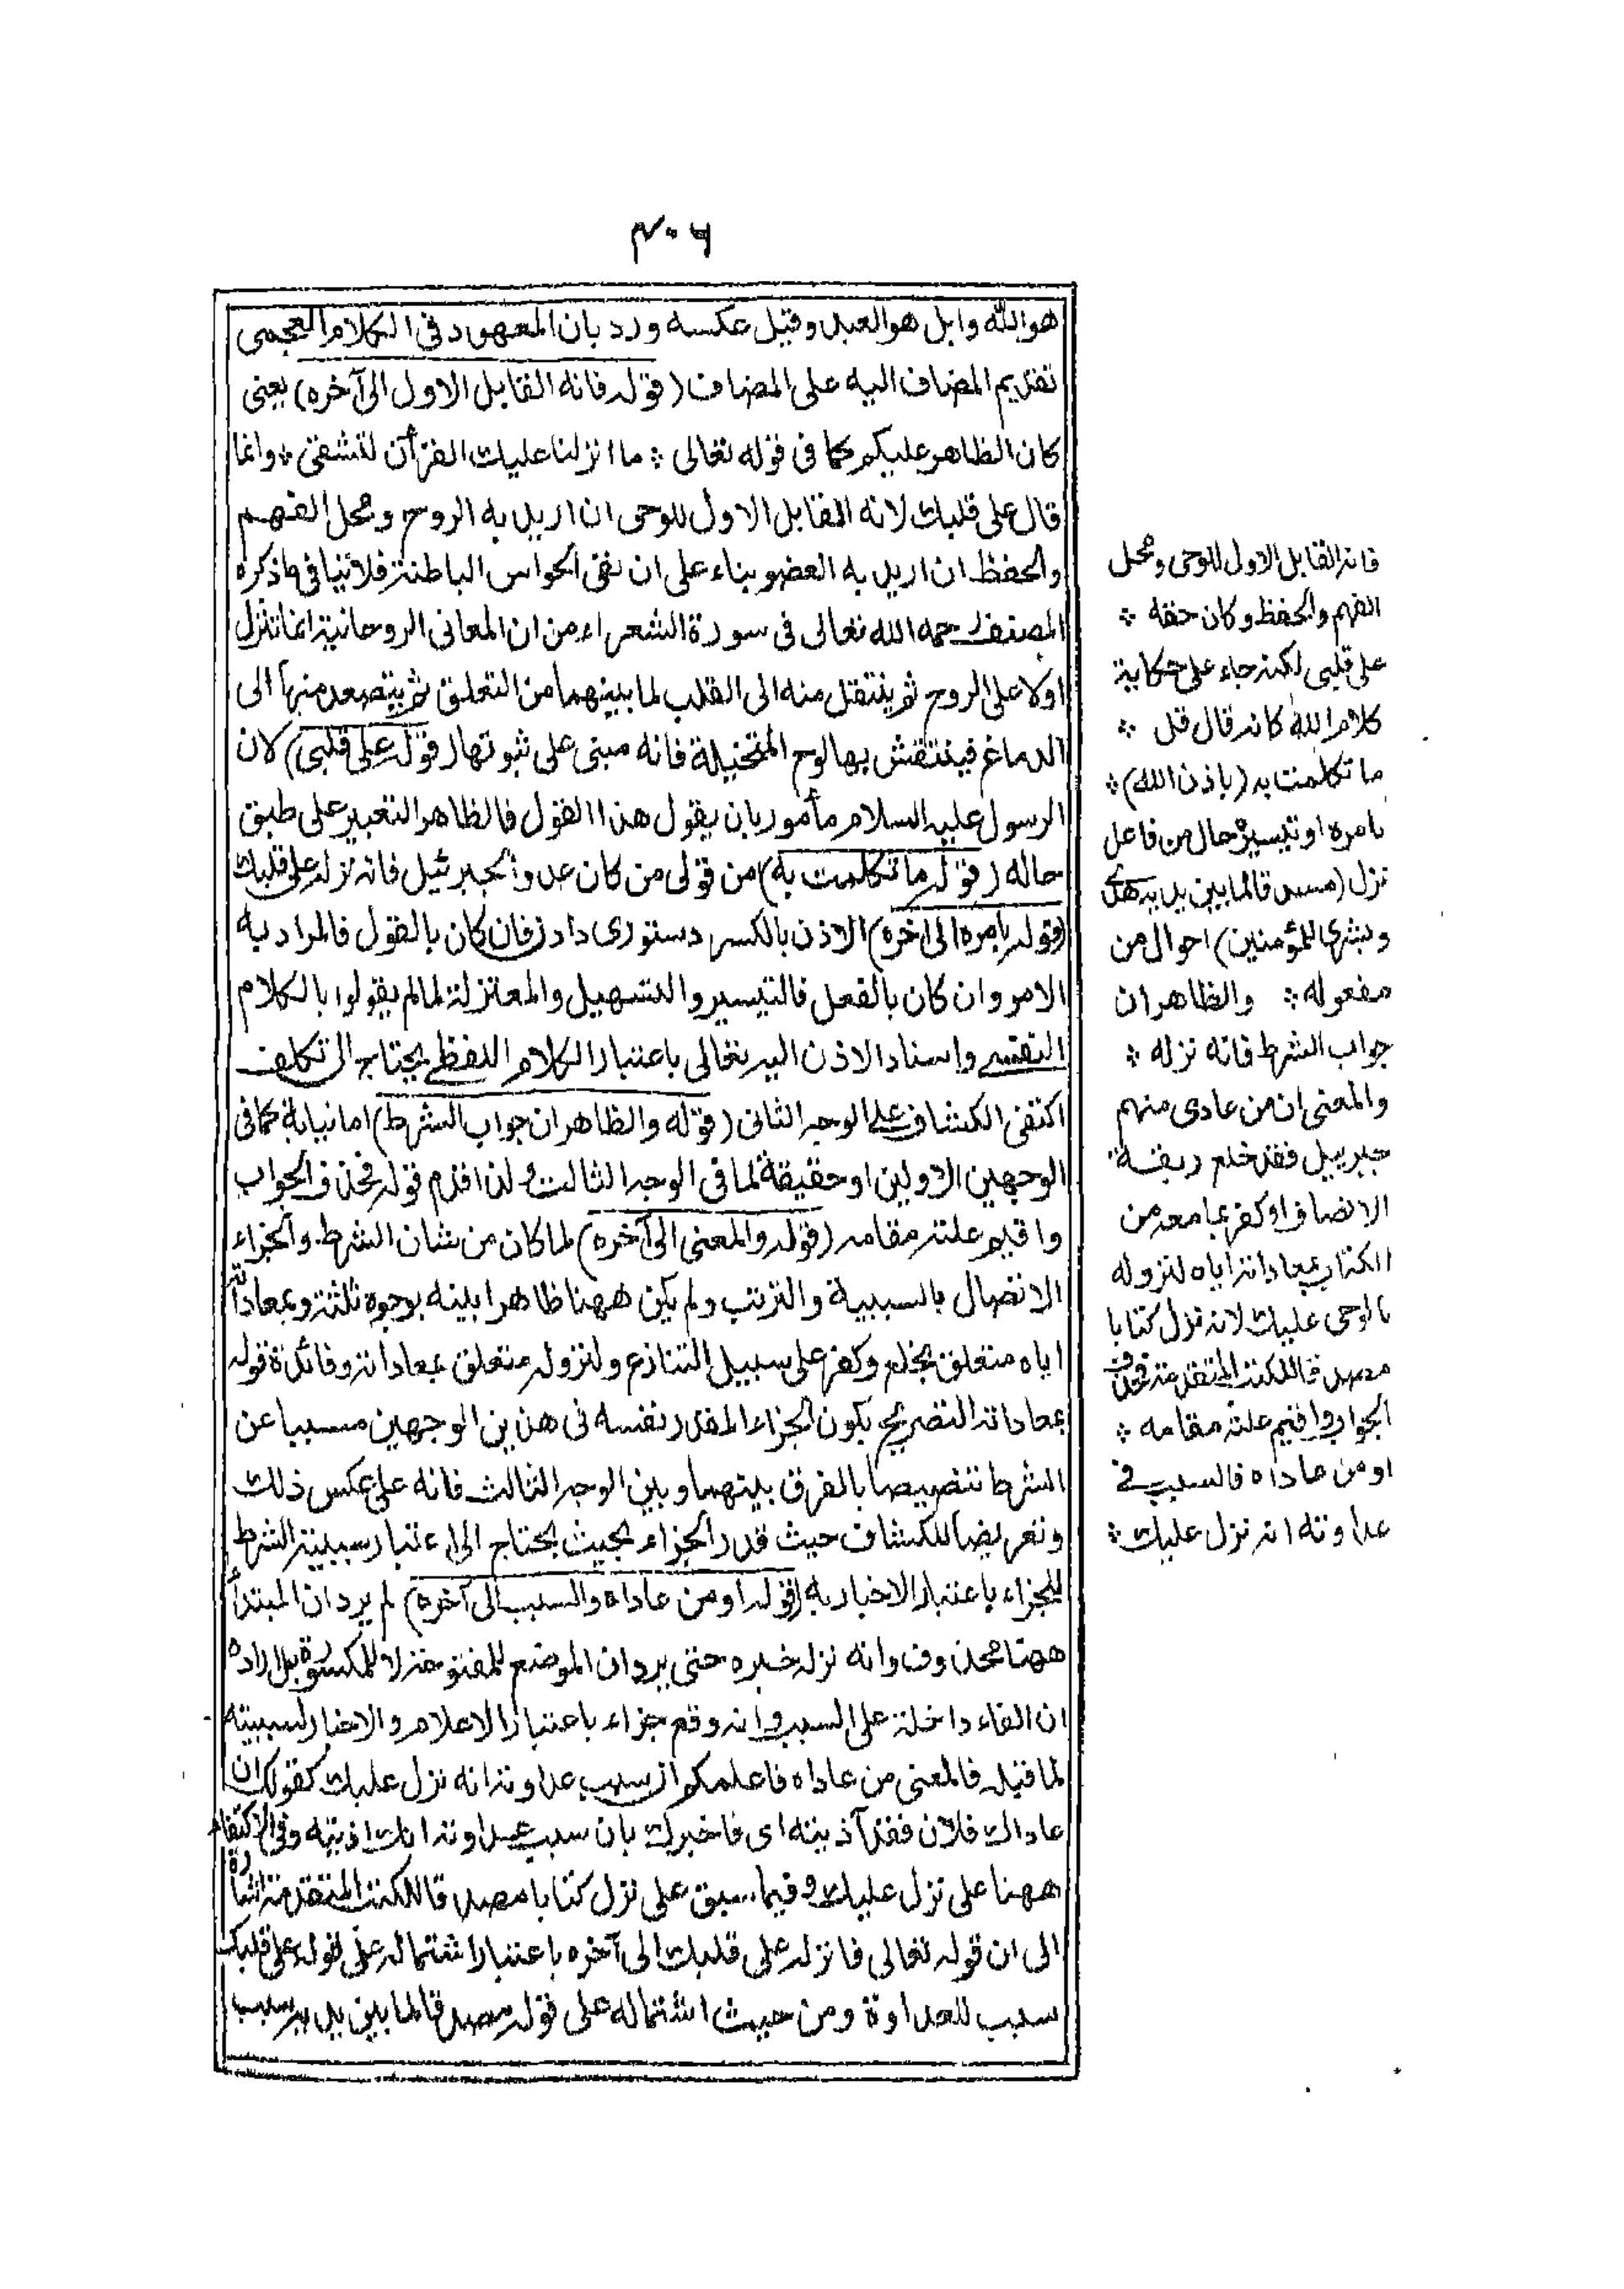 ٤٠٦
هو الله وايل هو العبد وقيل عكسه ورد بان المعهود فى الكلام العجمى
تقديم المضاف اليه على المضاف (قوله فانه القابل الاول الى آخره) يعنى
كان الظاهر عليكم كما فى قوله تعالى ⁘ ما انزلنا عليك القرآن لتشقى ⁘ وانما
قال على قلبك لانه القابل الاول للوحى ان اريد به الروح ومحل الفهم
والحفظ ان اريد به العضو بناء على ان نفى الحواس الباطنة فلا ينافى ما ذكره
المصنف رحمه الله تعالى فى سورة الشعراء من ان المعانى الروحانية انما تنزل
اولا على الروح ثم ينتقل منه الى القلب لما بينهما من التعلق ثم يتصعد منها الى
الدماغ فينتقش بها لوح المتخيلة فانه مبنى على ثبوتها (قوله على قلبى) لان
الرسول عليه السلام مأمور بان يقول هذا القول فالظاهر التعبير على طبق
حاله (قوله ما تكلمت به) من قولى من كان عدوا لجبرئيل فانه نزله على قلبك
(قوله بامره الى آخره) الاذن بالكسر دستورى دادن فان كان بالقول فالمراد به
الامر وان كان بالفعل فالتيسير والتسهيل والمعتزلة لما لم يقولوا بالكلام
النفسى واسناد الاذن اليه تعالى باعتبار الكلام اللفظى يحتاج الى تكلف
اكتفى الكشاف على الوجه الثانى (قوله والظاهر ان جواب الشرط) اما نيابة كما فى
الوجهين الاولين او حقيقة كما فى الوجه الثالث ولذا قدم قوله فحذف الجواب
واقيم علته مقامه (قوله والمعنى الى آخره) لما كان من شان الشرط والجزاء
الاتصال بالسببية والترتب ولم يكن ههنا ظاهرا بينه بوجوه ثلثة وبمعاداته
اياه متعلق بخلع وكفر على سبيل التنازع ولنزوله متعلق بمعاداته وفائدة قوله
بمعاداته التصريح بكون الجزاء المقدر نفسه فى هذين الوجهين مسببا عن
الشرط تنصيصا بالفرق بينهما وبين الوجه الثالث فانه على عكس ذلك
وتعريضا للكشاف حيث قدر الجزاء بحيث يحتاج الى اعتبار سببية الشرط
للجزاء باعتبار الاخبار به (قوله او من عاداه والسبب الى آخره) لم يرد ان المبتدأ
ههنا محذوف وانه نزله خبره حتى يرد ان الموضع للمفتوحة لا للمكسورة بل اراد
ان الفاء داخلة على السبب وانه وقع جزاء باعتبار الاعلام والاخبار لسببيته
لما قبله فالمعنى من عاداه فاعلمكم ان سبب عداوته انه نزل عليك كقولك ان
عاداك فلان فقد آذيته اى فاخبرك بان سبب عداوته انك اذيته وفى الاكتفاء
ههنا على نزل عليك وفيما سبق على نزل كتابا مصدقا للكتب المتقدمة اشارة
الى ان قوله تعالى فانه نزله على قلبك الى آخره باعتبار اشتماله على قوله على قلبك
سبب للعداوة ومن حيث اشتماله على قوله مصدقا لما بين يديه سبب
فانه القابل الاول للوحى ومحل
الفهم والحفظ وكان حقه ⁘
على قلبى لكنه جاء على حكاية
كلام الله كانه قال قل ⁘
ما تكلمت به (باذن الله) ⁘
بامره او تيسيره حال من فاعل
نزل (مصدقا لما بين يديه وهدى
وبشرى للمؤمنين) احوال من
مفعوله ⁘ والظاهر ان
جواب الشرط فانه نزله ⁘
والمعنى ان من عادى منهم
جبرييل فقد خلع ربقة
الانصاف او كفر بما معه من
الكتاب بمعاداته اياه لنزوله
بالوحى عليك لانه نزل كتابا
مصدقا للكتب المتقدمة فحذف
الجواب واقيم علته مقامه ⁘
او من عاداه فالسبب فى
عداوته انه نزل عليك ⁘